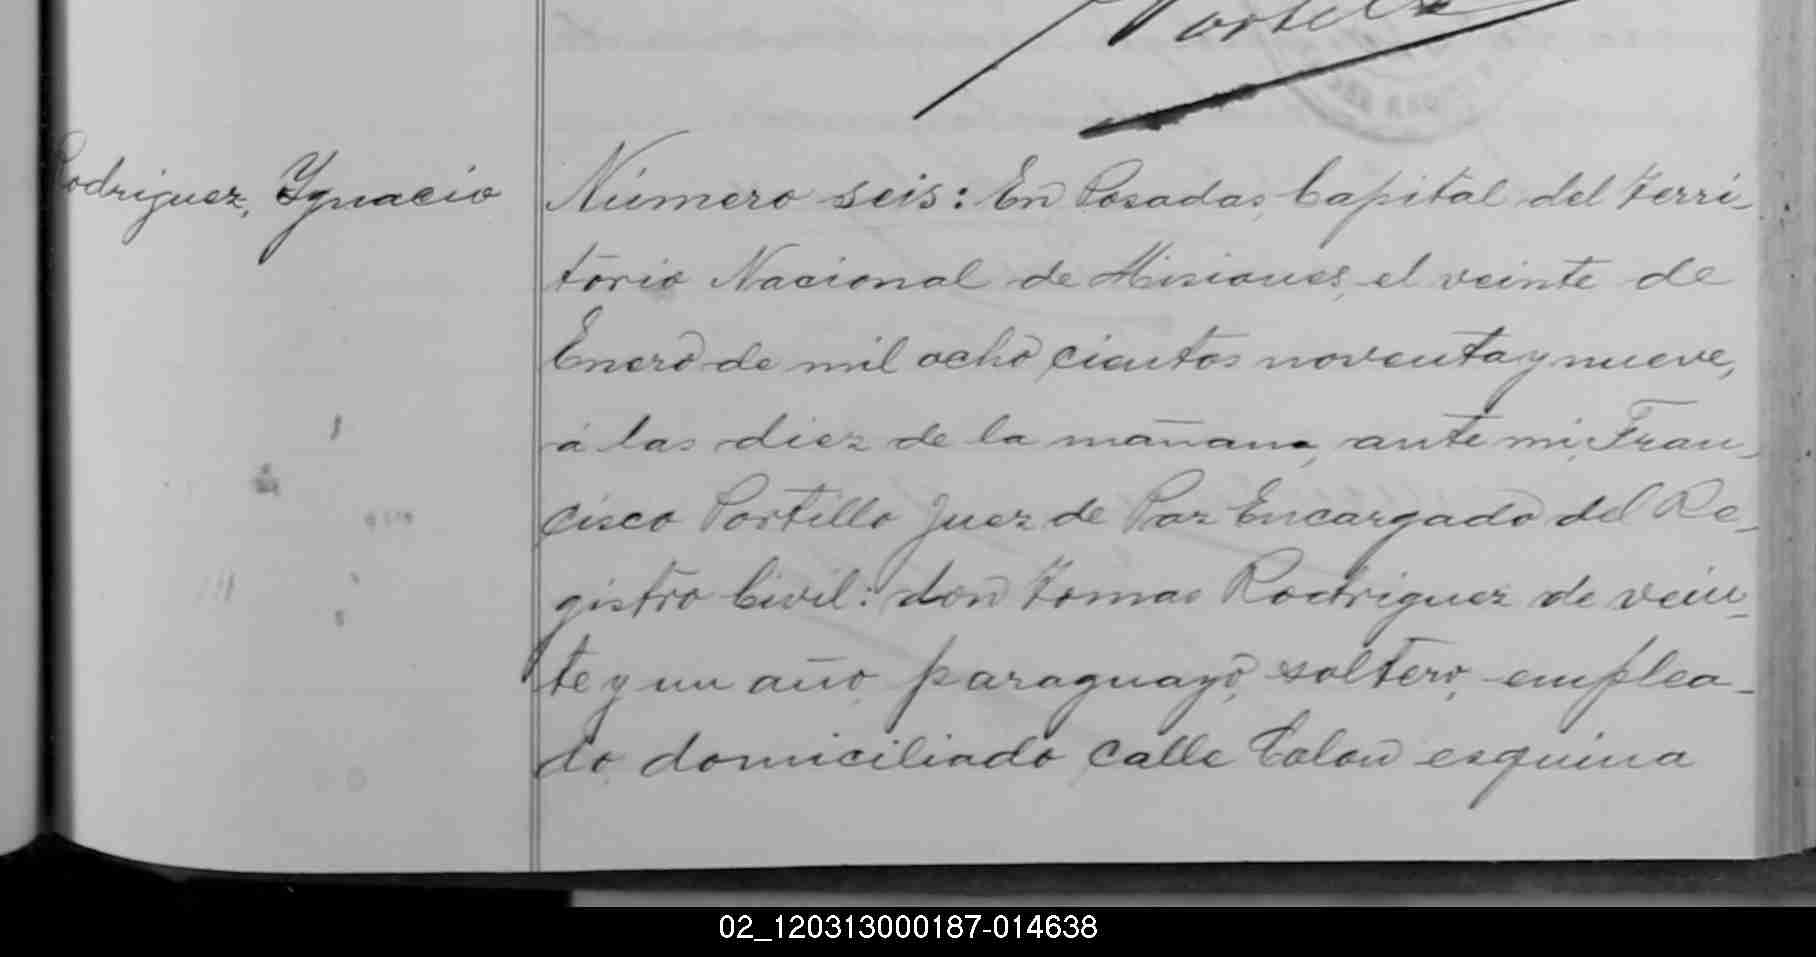 Portillo
Rodriguez, Ygnacio
Número seis: En Posadas, Capital del Terri-
torio Nacional de Misiones, el veinte de
Enero de mil ocho cientos noventa y nueve,
á las diez de la mañana, ante mi, Fran-
cisco Portillo Juez de Paz Encargado del Re-
gistro Civil: don Tomas Rodriguez de vein-
te y un año, paraguayo, soltero, emplea-
do, domiciliado calle Colon esquina
02_120313000187-014638